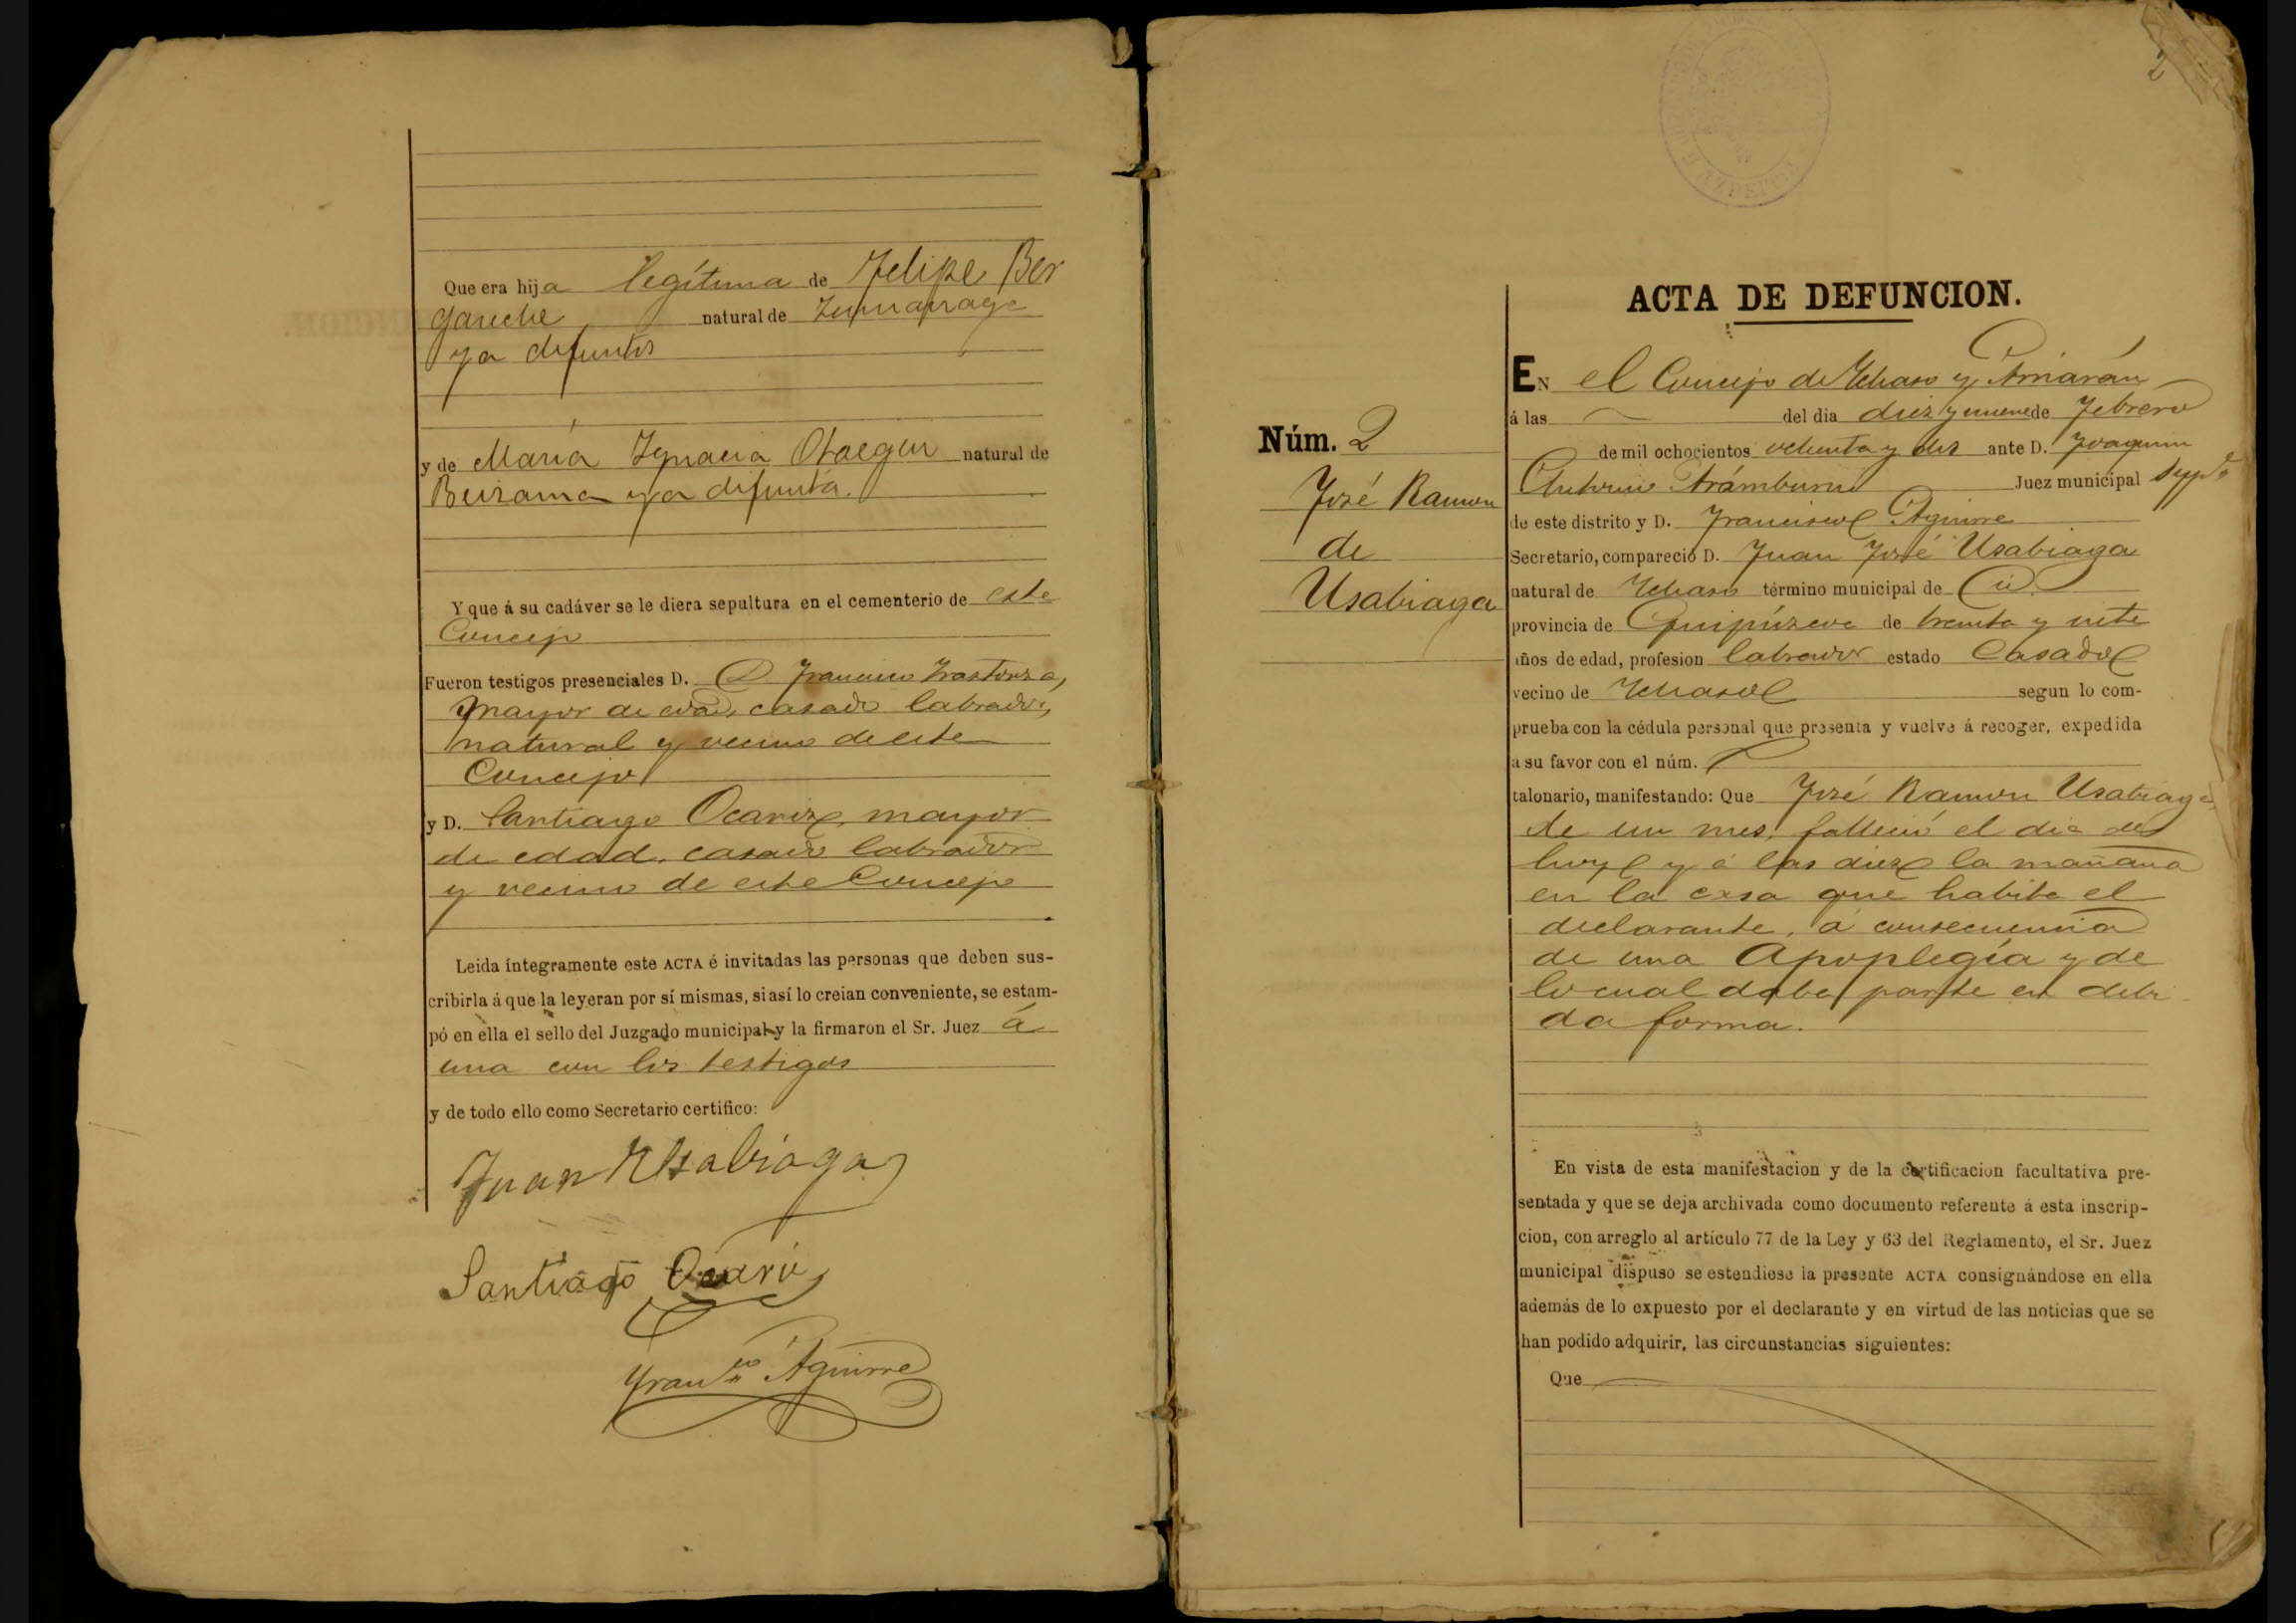 Que era hija legítima de Felipe Ber
gareche natural de Zumarraga
ya difuntos
y de María Ygnacia Otaegui natural de
Beizama ya difunta.
Y que á su cadáver se le diera sepultura en el cementerio de este
Concejo
Fueron testigos presenciales D. D. Francisco
mayor de edad, casado labrador,
natural y vecino de este
Concejo
y D. Santiago Ocariz, mayor
de edad, casado labrador
y vecino de este Concejo
Leida íntegramente este ACTA é invitadas las personas que deben sus-
cribirla á que la leyeran por sí mismas, si así lo creian conveniente, se estam-
pó en ella el sello del Juzgado municipal y la firmaron el Sr. Juez á
una con los testigos
y de todo ello como Secretario certifico:
Juan Usabiaga
Santiago Ocariz
Franco Aguirre
2
AZPEITIA
ACTA DE DEFUNCION.
Núm. 2
José Ramon
de
Usabiaga
EN el Concejo de Ychaso y Arriarán
á las del dia diez y nueve de Febrero
de mil ochocientos ochenta y dos ante D. Joaquin
Antonio Arámburu Juez municipal
de este distrito y D. Francisco Aguirre
Secretario, compareció D. Juan José Usabiaga
natural de Ychaso término municipal de id.
provincia de Guipúzcoa de treinta y siete
años de edad, profesion labrador estado Casado
vecino de Ychaso segun lo com-
prueba con la cédula personal que presenta y vuelve á recoger, expedida
a su favor con el núm.
talonario, manifestando: Que José Ramon Usabiaga,
de un mes, falleció el dia de
hoy y á las diez la mañana
en la casa que habita el
declarante, á consecuencia
de una Apoplegía y de
lo cual daba parte en debi
da forma.
En vista de esta manifestacion y de la certificacion facultativa pre-
sentada y que se deja archivada como documento referente á esta inscrip-
cion, con arreglo al artículo 77 de la Ley y 63 del Reglamento, el Sr. Juez
municipal dispuso se estendiese la presente ACTA consignándose en ella
además de lo expuesto por el declarante y en virtud de las noticias que se
han podido adquirir, las circunstancias siguientes:
Que